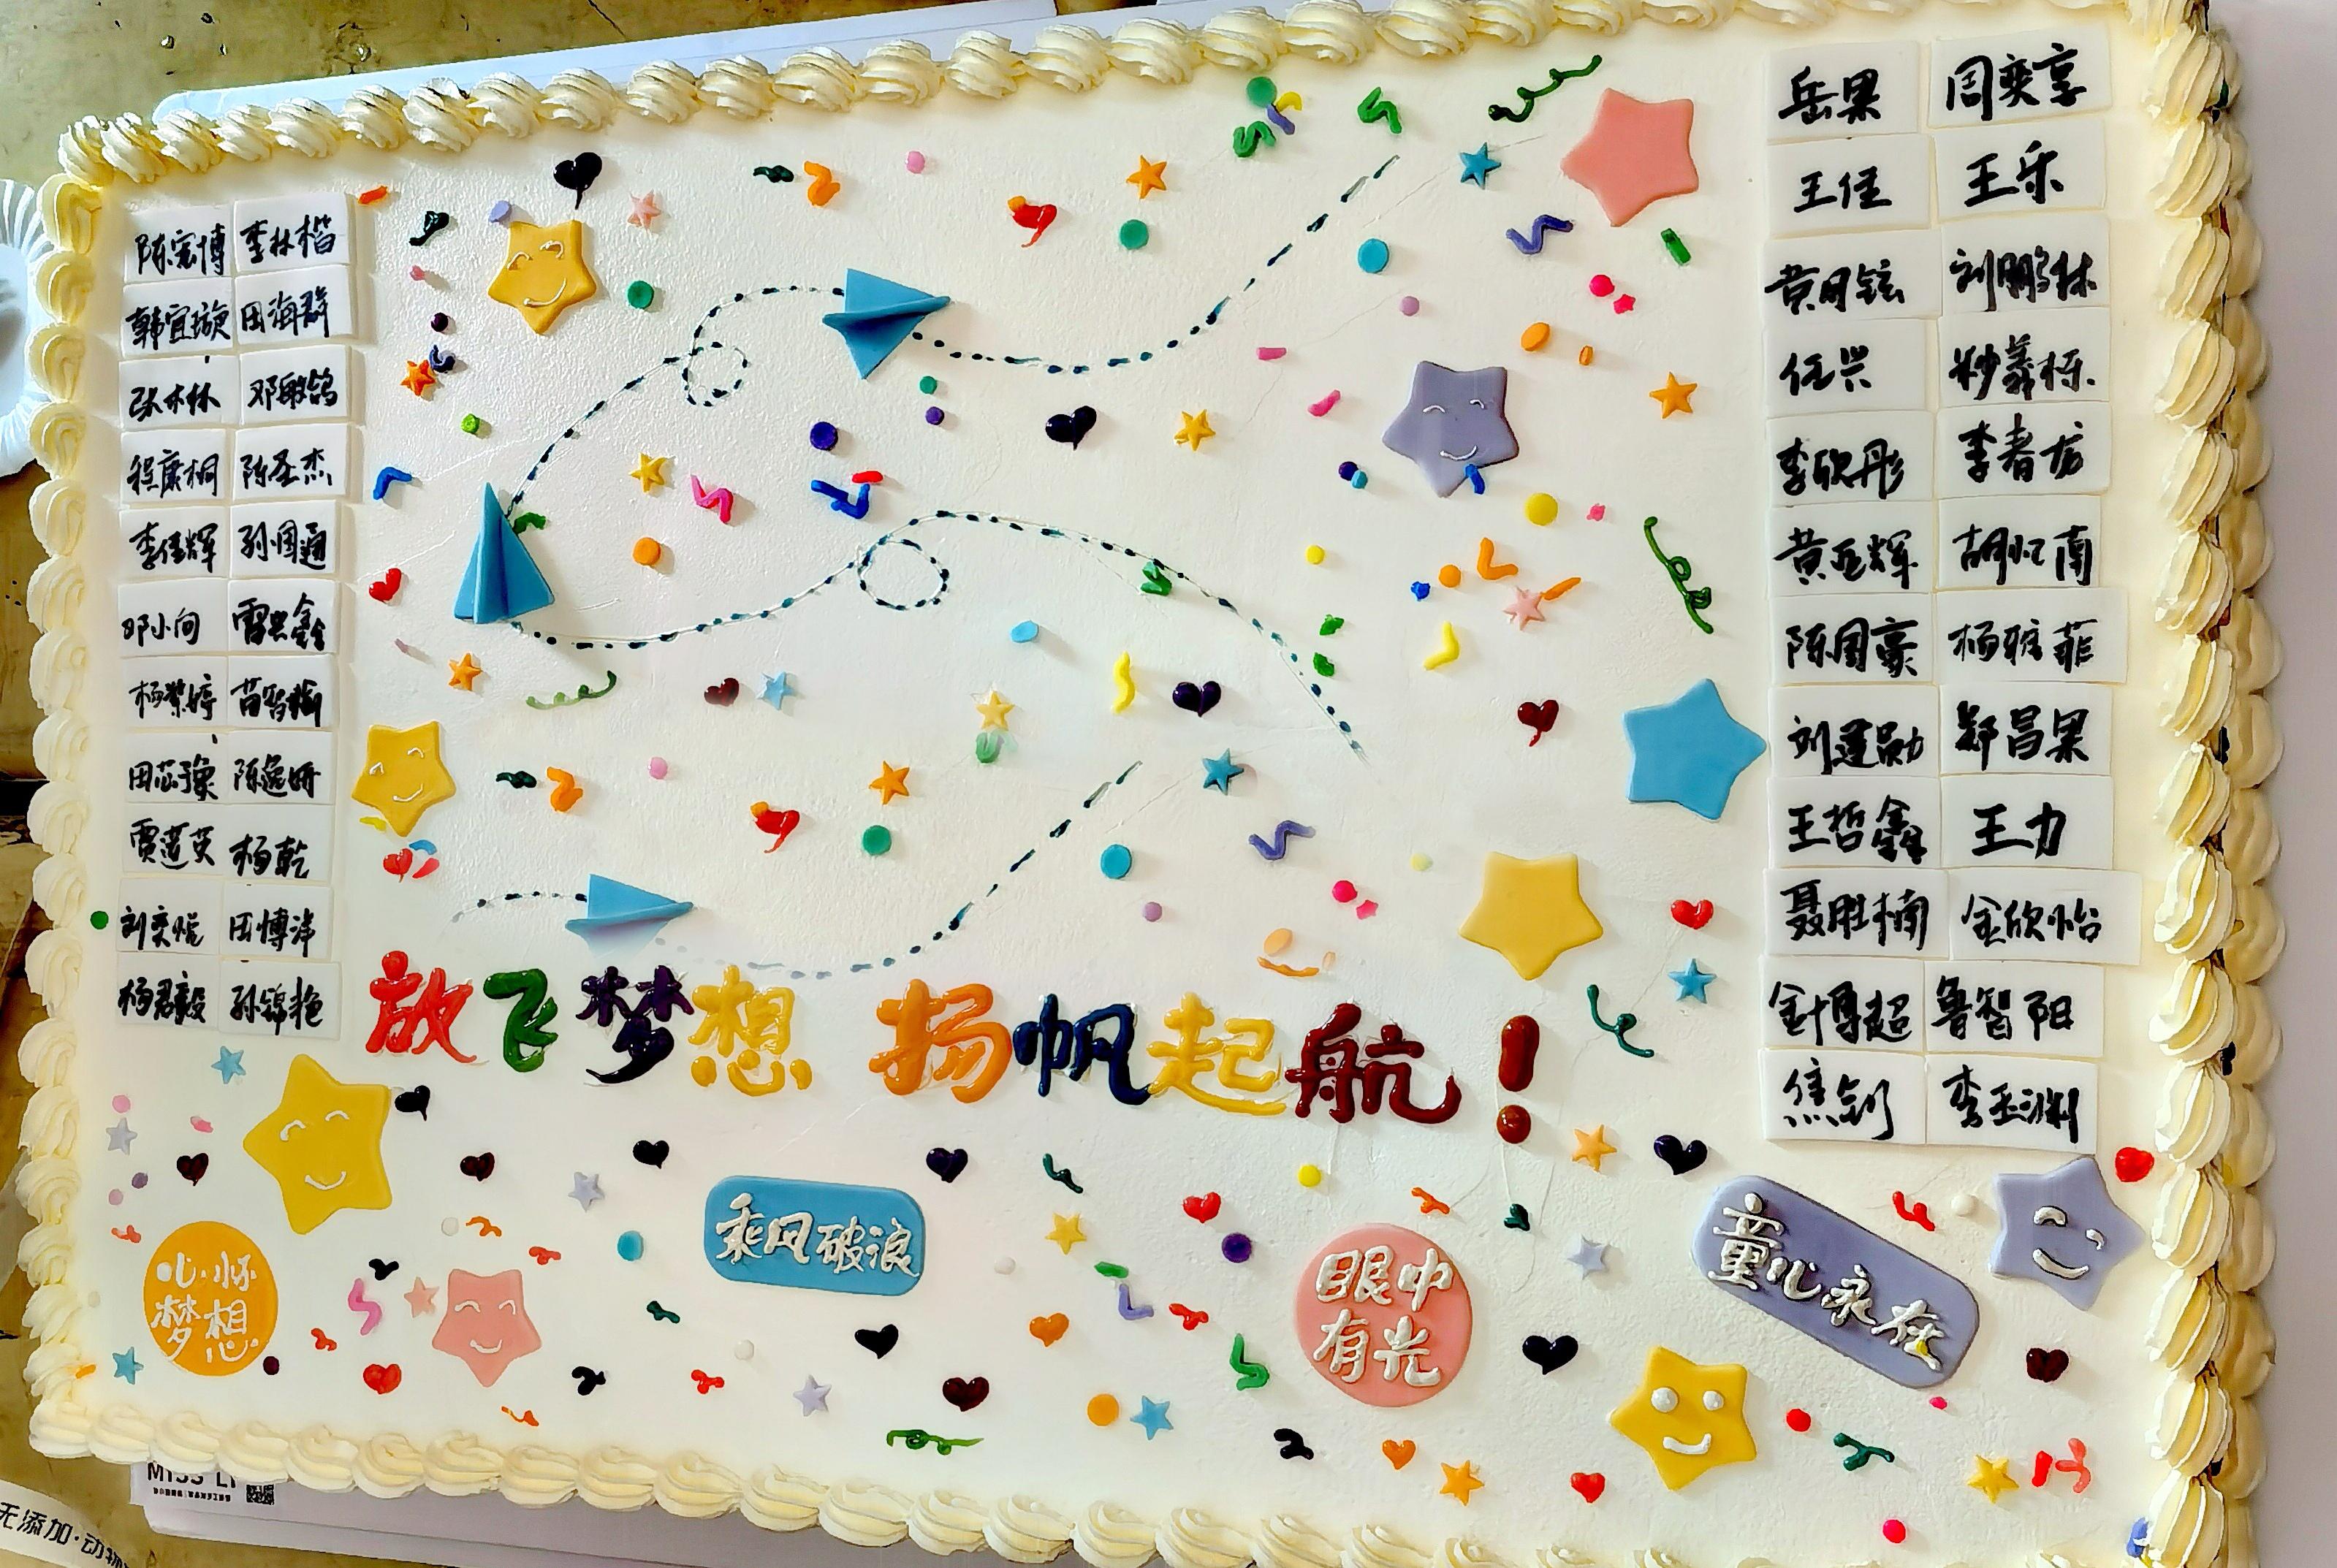 陈宏博 李林楷
韩宜璇 田海群
张木林 邓敏鸽
程康桐 陈圣杰
李佳辉 孙国通
邓小向 雷兴鑫
杨紫婷 苗智瑜
田芯豫 陈逸妍
贾莲英 杨乾
刘奕焜 田博洋
杨君毅 孙锦艳
岳果 周奕享
王佳 王乐
黄月铉 刘鹏林
任兴 郑義栎
李欣彤 李春龙
黄亚辉 胡忆南
陈国豪 杨雅菲
刘莲勋 郑昌果
王哲鑫 王力
聂胜楠 金欣怡
金博超 鲁智阳
焦剑 李玉渊
放飞梦想 扬帆起航！
乘风破浪
心怀
梦想
眼中
有光
童心永在
MISS LI
无添加·动物